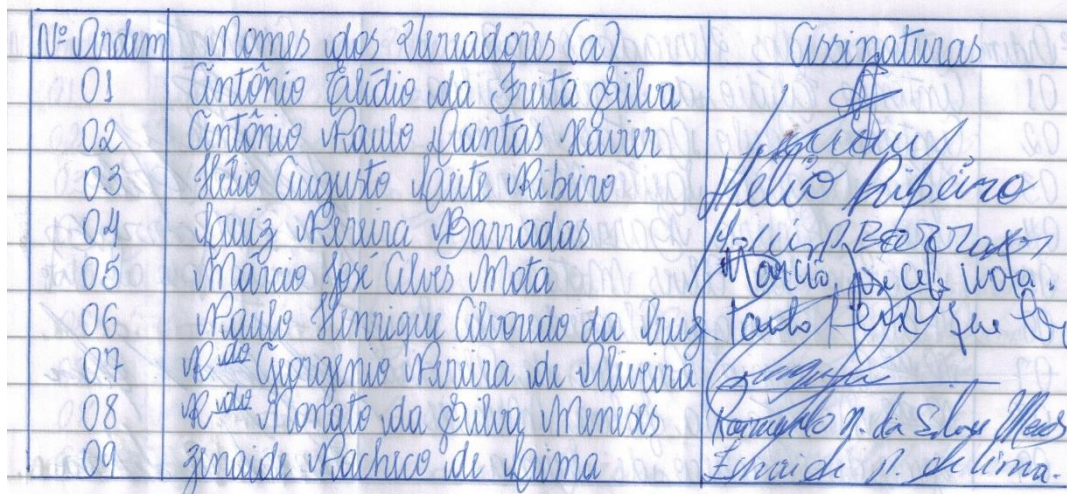 Nº Ordem Nomes dos Vereadores (a) Assinaturas
01 Antônio Elídio da Fruta Silva
02 Antônio Paulo Dantas Xavier
03 Hélio Augusto Leite Ribeiro Hélio Ribeiro
04 Luiz Pereira Barradas Luis P. BARRADAS
05 Márcio José Alves Mota Marcio José Alv Mota.
06 Paulo Henrique Alvoredo da Cruz Paulo Henrique
07 R.do Georgenio Pereira de Oliveira
08 R.do Nonato da Silva Meneses Raimundo N. da Silva
09 Zenaide Pacheco de Lima Zenaide P. de lima.